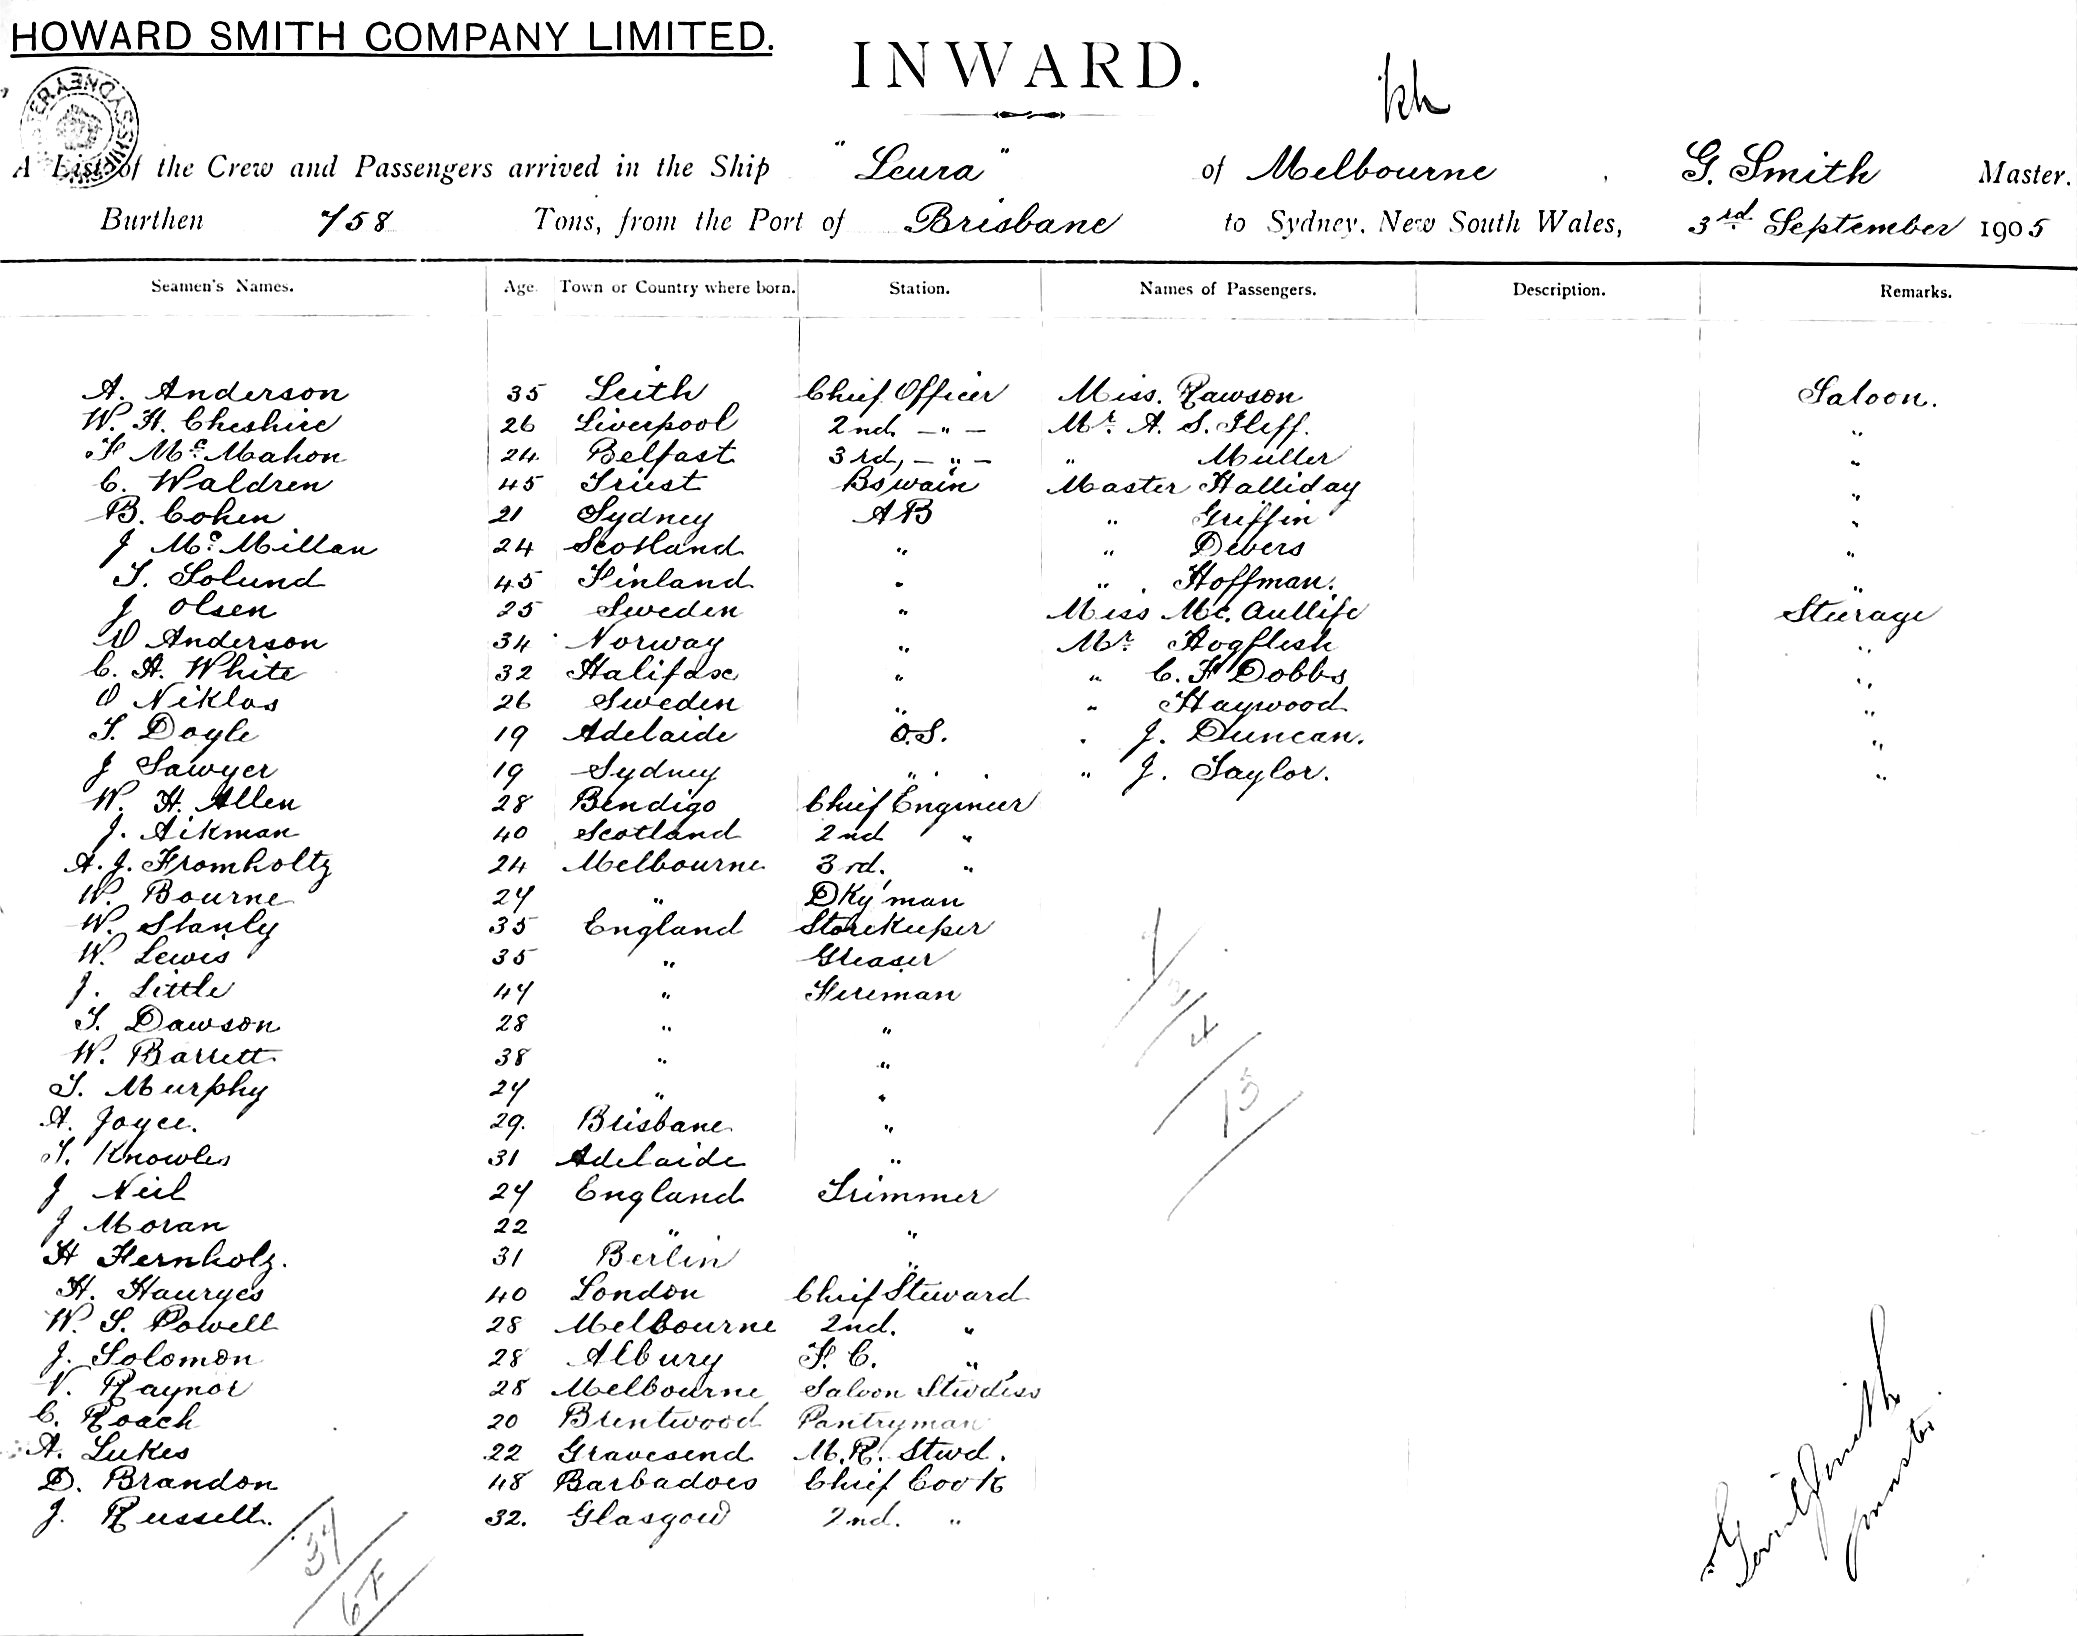 HOWARD SMITH COMPANY LIMITED.
INWARD.
A List of the Crew and Passengers arrived in the Ship "Leura" of Melbourne, G. Smith Master.
Burthen 758 Tons, from the Port of Brisbane to Sydney, New South Wales, 3rd September 1905
Seamen's Names. Age. Town or Country where born. Station. Names of Passengers. Description. Remarks.
A. Anderson 35 Leith Chief Officer Miss. Rawson Saloon.
W. H. Cheshire 26 Liverpool 2nd – " – Mr. A. S. Iliff. "
F McMahon 24 Belfast 3rd, – " – " Muller "
C. Waldren 45 Triest Bswain Master Halliday "
B. Cohen 21 Sydney AB " Griffin "
J McMillan 24 Scotland " " Devers "
T. Solund 45 Finland " " Hoffman. "
J Olsen 25 Sweden " Miss Mc. Aullife Steerage
O Anderson 34 Norway " Mr Hogflesh "
C. H. White 32 Halifax " " C. F Dobbs "
O Niklos 26 Sweden " " Haywood "
T. Doyle 19 Adelaide O.S. " J. Duncan. "
J Sawyer 19 Sydney " " J. Taylor. "
W. H. Allen 28 Bendigo Chief Engineer
J. Aikman 40 Scotland 2nd "
A. J. Fromholtz 24 Melbourne 3rd. "
W. Bourne 27 " Dky'man
W. Stanly 35 England Storekeeper
W. Lewis 35 " Greaser
J. Little 47 " Fireman
T. Dawson 28 " "
W. Barrett 38 " "
T. Murphy 27 " "
A. Joyce. 29. Brisbane "
T. Knowles 31 Adelaide "
J Neil 27 England Trimmer
J Moran 22 " "
H Fernholz. 31 Berlin "
H. Hauryes 40 London Chief Steward
W. S. Powell 28 Melbourne 2nd. "
J. Solomon 28 Albury F. C. "
V. Raynor 28 Melbourne Saloon Stwd'ess
C. Roach 20 Brentwood Pantryman
A. Lukes 22 Gravesend M. R. Stwd.
D. Brandon 48 Barbadoes Chief Cook
J. Russell. 32. Glasgow 2nd. "
7
2
4
13
37
Smith
master